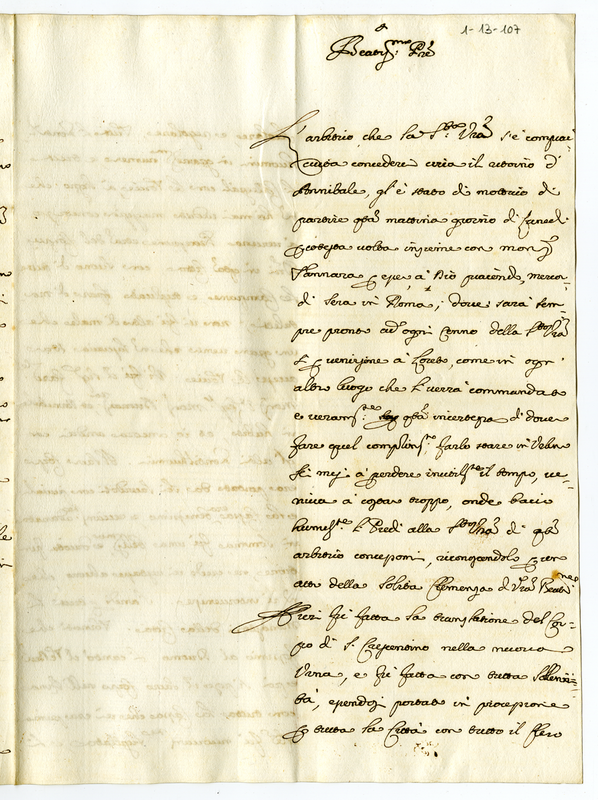 1-13-107
Beatis.mo Pr̃e
L'arbitrio che la S.tà Vr̃a s'è compiac-
ciuta concedere circa il ritorno d'
Annibale, gl'è stato di motivo di
partire qr̃a mattina giorno di
volta insieme con mons.r
à Dio piacendo, merco-
dì sera in Roma; dove sarà sem
pre pronto ad ogni cenno della S.tà Vr̃a
ò venirsene à Loreto, come in ogni
altro luogo che verrà commandato
e veram.te incertezza di dove
fare quel complim.to farlo stare in
sei mesi à perdere inutilm.te il tempo, ve-
niva à costar troppo, onde bacio
humilm.te i Piedi alla S.tà Vr̃a di
arbitrio concessomi, riconoscendolo per
atto della solita Clemenza di Vr̃a Beat.ne
Hieri fù fatta la translatione del Cor-
po di S. Crescentino nella nuova
Urna, e fù fatta con tutta sollenni-
tà, essendosi portato in processione
per tutta la Città con tutto il Clero